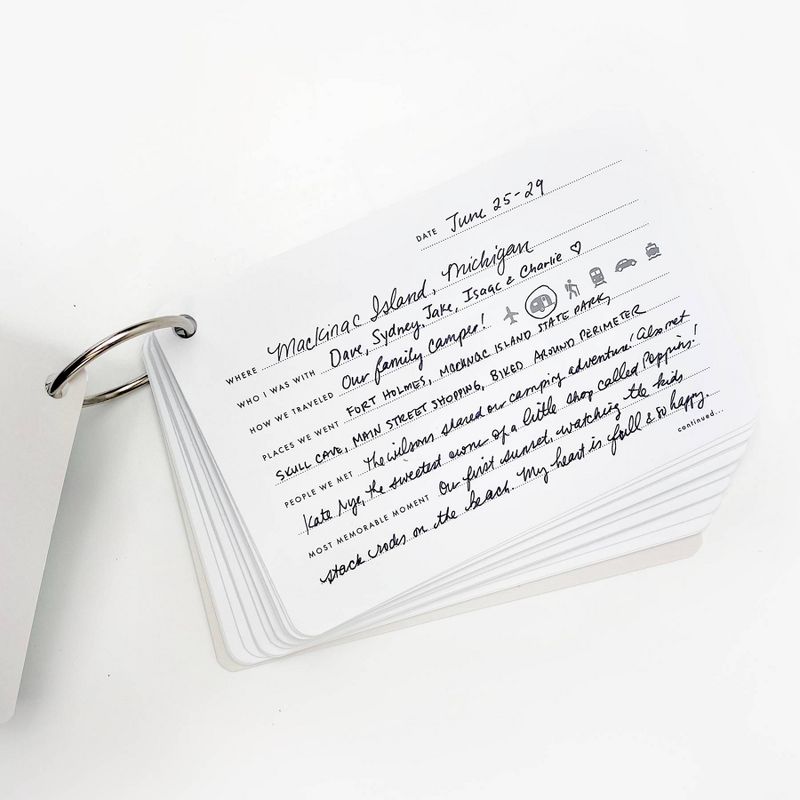 DATE June 25-29
WHERE Mackinac Island, Michigan
WHO I WAS WITH Dave, Sydney, Jake, Isaac & Charlie ♡
HOW WE TRAVELED Our family camper!
PLACES WE WENT FORT HOLMES, MACKINAC ISLAND STATE PARK,
SKULL CAVE, MAIN STREET SHOPPING, BIKED AROUND PERIMETER
PEOPLE WE MET The Wilsons shared our camping adventure! Also met
Kate Nye, the sweetest owner of a little shop called Poppins!
MOST MEMORABLE MOMENT Our first sunset, watching the kids
stack rocks on the beach. My heart is full & so happy.
continued...